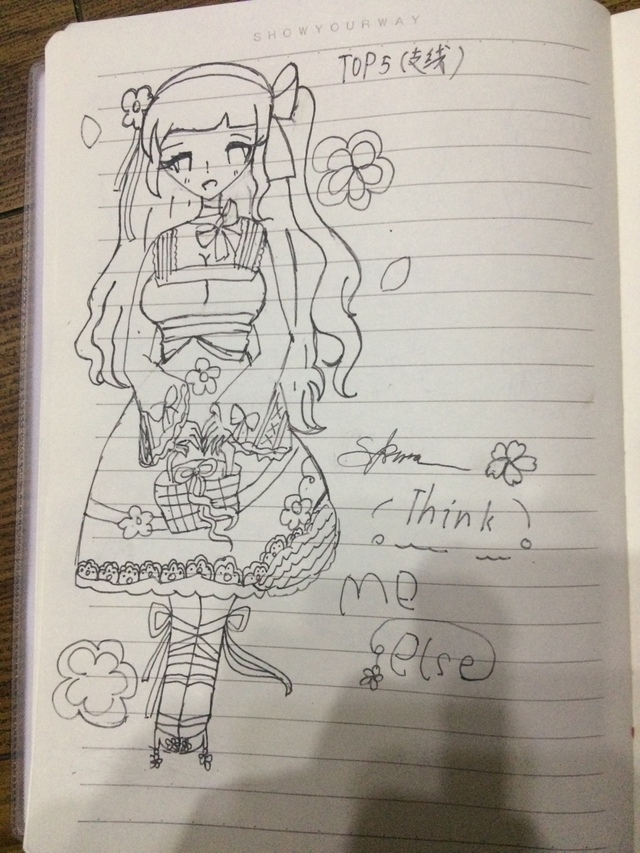 SHOWYOURWAY
TOP5(支线)
Think
me
else